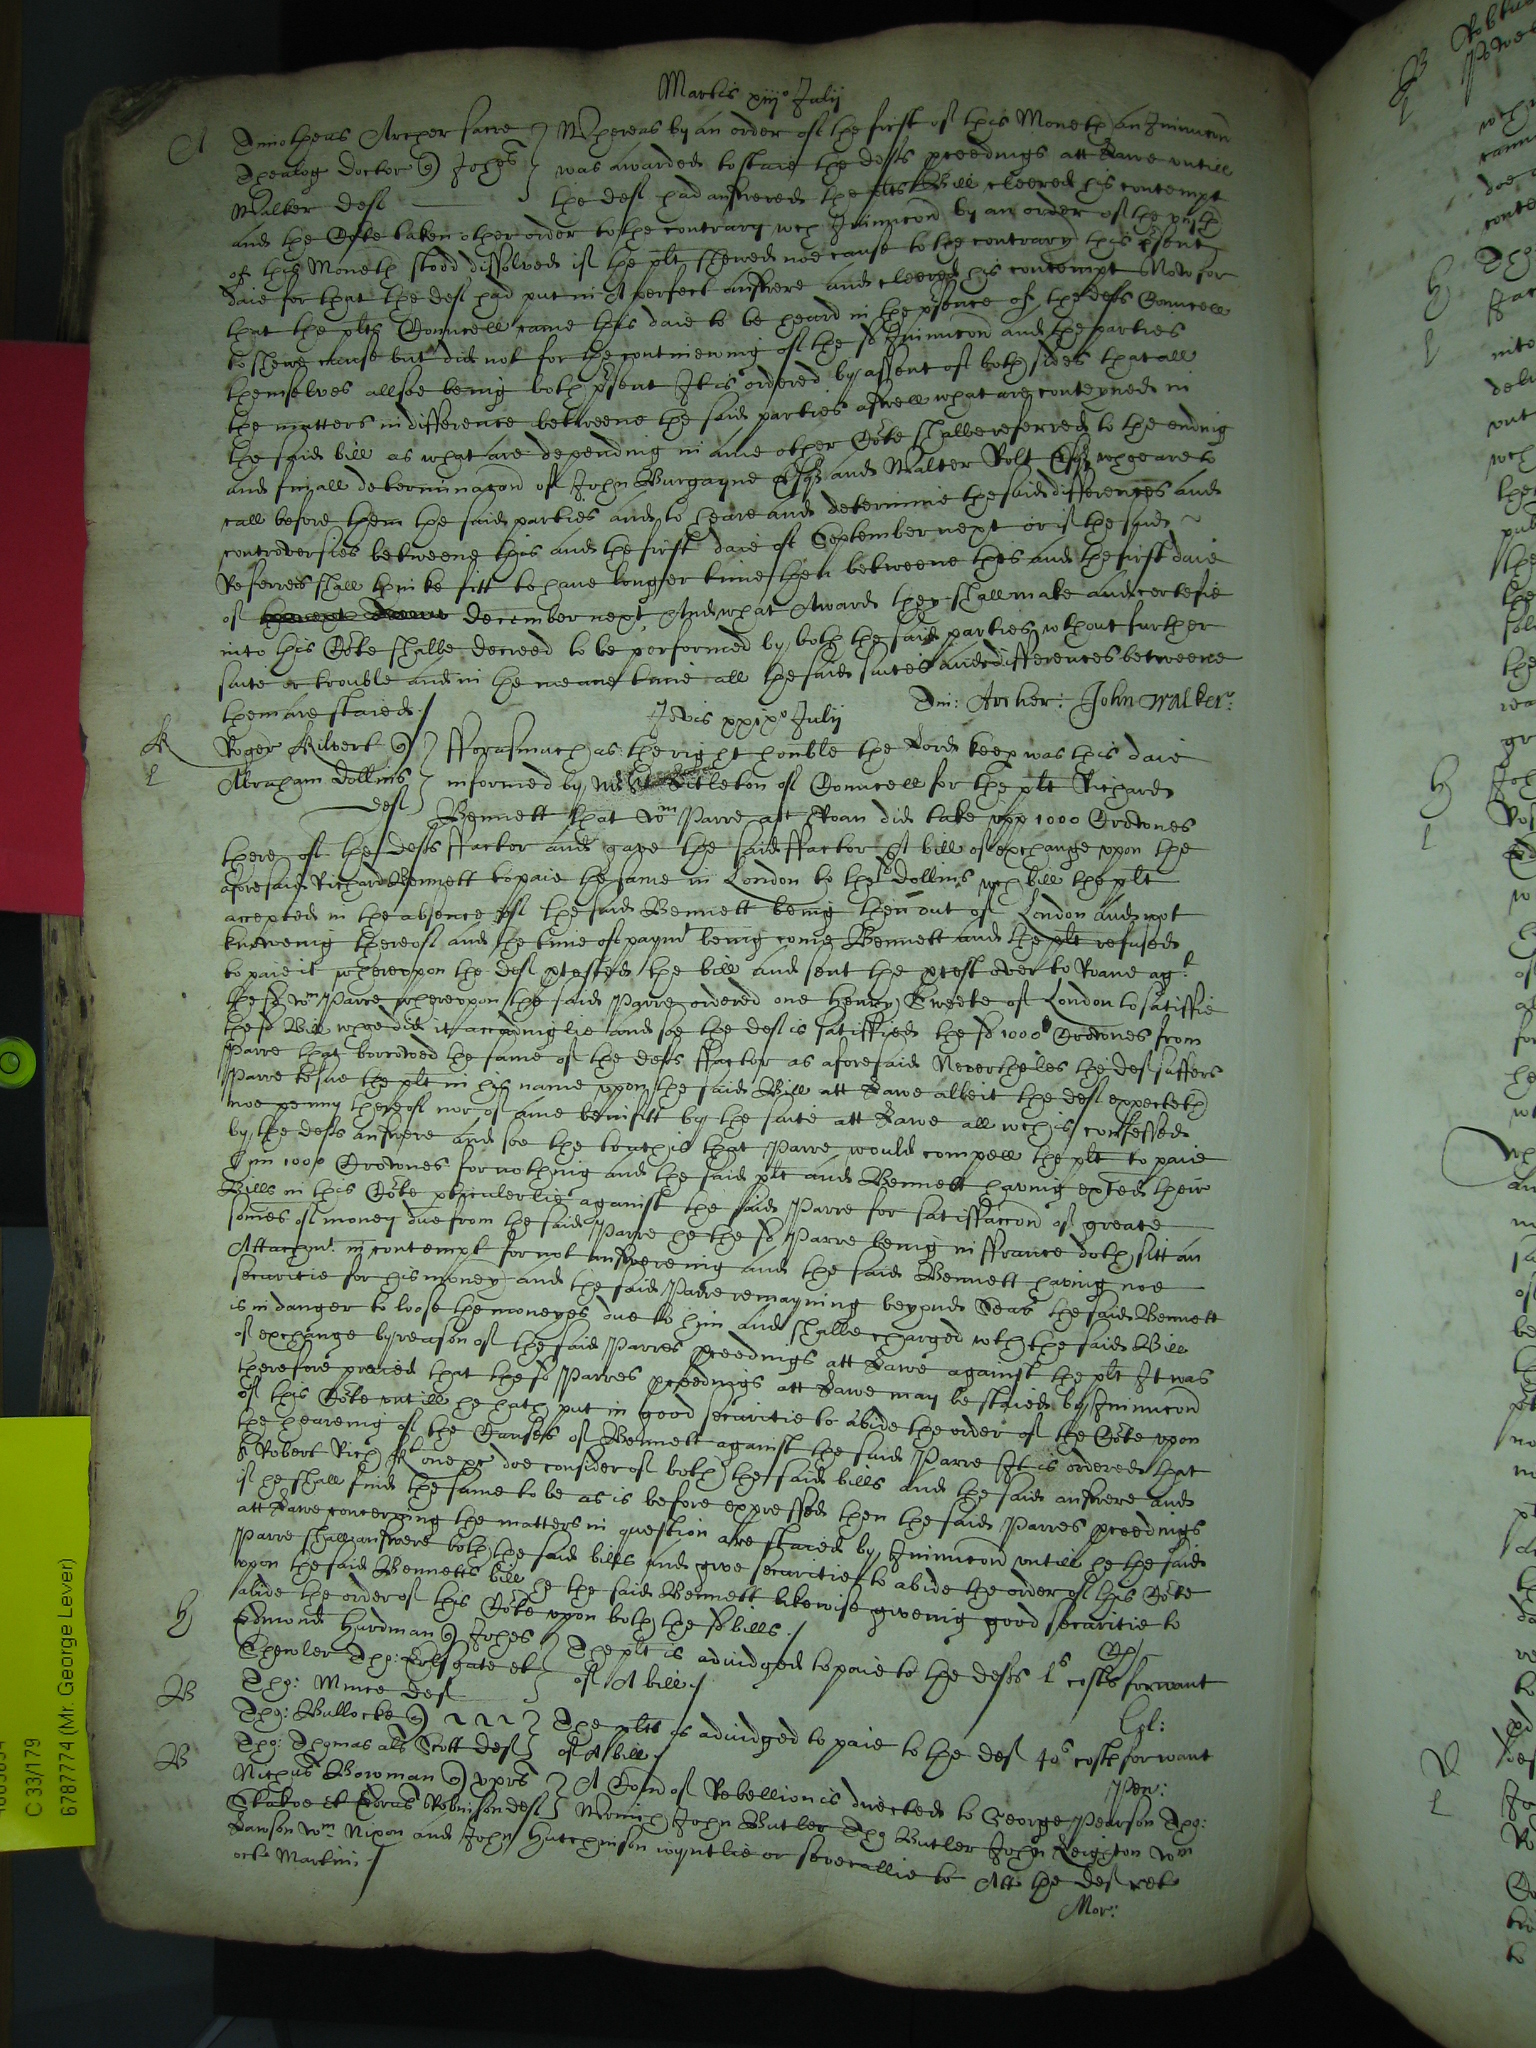 Martis xiijo Julij
A Timotheus Archer sacre Whereas by an order of the first of this Moneth an Iniunccon
Theolog doctor Johes was awarded to staie the defts pceedings att Lawe untill
Walker deft the deft had answered the plts Bill cleered his contempt
and the Corte taken other order to the contrary wch Iniunccon by an order of the
of this Moneth stood dissolved if the plt shewed noe cause to the contrary this psent
daie for that the deft had put in A perfect answere and cleered his contempt Now for
that the plts Councell came this daie to be heard in the psence of the defts Councell
to shewe cause but did not for the contineweing of the sd Iniunccon and the parties
themselves allsoe being both psent It is ordered by assent of both sides that all
the matters in difference betweene the said parties aswell what are conteyned in
the said bill as what are depending in anie other Corte shalbe referred to the ending
and finall determinacon of John Burgayne Esqr and Walter Rolt Esqr whoe are to
call before them the said parties and to heare and determine the said differences and
controversies betweene this and the first daie of September next or if the said
Referres shall thinke fitt to have longer time then betweene this and the first daie
of December next And what Award they shall make and certefie
into this Corte shalbe decreed to be performed by both the said parties wthout further
suite or trouble and in the meane time all the said suites and differences betweene
them are staied
Tim: Archer: John Walker:
Jovis xxixo Julij
K Roger Kilvert fforasmuch as the right honble the Lord keep was this daie
l Abraham Dollins informed by Mr Litleton of Councell for the plt Richard
deft Bennett that Wm Parre att Roan did take upp 1000 Crownes
there of the defts ffactor and gave the said ffactor A bill of exchange upon the
aforesaid Richard Bennett to paie the same in London to the sd Dollins wch bill the plt
accepted in the absence of the said Bennett being then out of London and not
knoweing thereof and the time of paymt being come Bennett and the plt refused
to paie it whereupon the deft ptested the bill and sent the ptest over to Roane agt
the sd Wm Parre whereupon the said Parre ordered one Henry of London to satisfie
the sd Bill whoe did it accordinglie and soe the deft is satisfied the sd 1000 Crownes from
Parre that borrowed the same of the defts ffactor as aforesaid Nevertheles the deft suffers
Parre to sue the plt in his name upon the said Bill att Lawe albeit the deft expecteth
noe penny thereof nor of anie benifitt by the suite att Lawe all wch is confessed
by the defts answere and soe the truth is that Parre would compell the plt to paie
him 1000 Crownes for nothing and the said plt and Bennett having expted their
Bills in this Corte pticulerlie against the said Parre for satisfaccon of greate
somes of money due from the said Parre he the sd Parre being in ffrance doth sitt an
Attachmt in contempt for not answereing and the said Bennett having noe
securitie for his money and the said Parre remayning beyond Seas the said Bennett
is in danger to loose the moneyes due to him and shalbe charged wth the said Bill
of exchange by reason of the said Parres pceedings att Lawe against the plt It was
therefore praied that the sd Parres pceedings att Lawe may be staied by Iniunccon
of this Corte untill he hath put in good securitie to abide the order of the Corte upon
the heareing of the Causes of Bennett against the said Parre It is ordered that
Sr Robert Rich Kt one &c doe consider of both the said bills and the said answere and
if he shall find the same to be as is before expressed then the said Parres pceedings
att Lawe concerning the matters in question are staied by Iniunccon untill he the said
Parre shall answere both the said bills and give securitie to abide the order of this Corte
upon the said Bennetts bill he the said Bennett likewise giveing good securitie to
abide the order of this Corte upon both the sd bills
H Edmond Hurdman Johes The plt is adiudged to paie to the defts ls costs for want
Tho: et of A bill
Tho: Mince deft
B Tho: Bullocke The plt is adiudged to paie to the deft 40s costs for want
Tho: Thomas als Scott deft of A bill
Pen:
B Bowman A Comn of Rebellion is directed to George Pearson Tho:
et Robinson deft John Butler Tho Butler John Leighton Wm
Lawson Wm Nixon and John Hutchinson ioyntlie or severallie to Att the deft ret
octo Martini
Mor:
C 33/179
6787774 (Mr. George Lever)